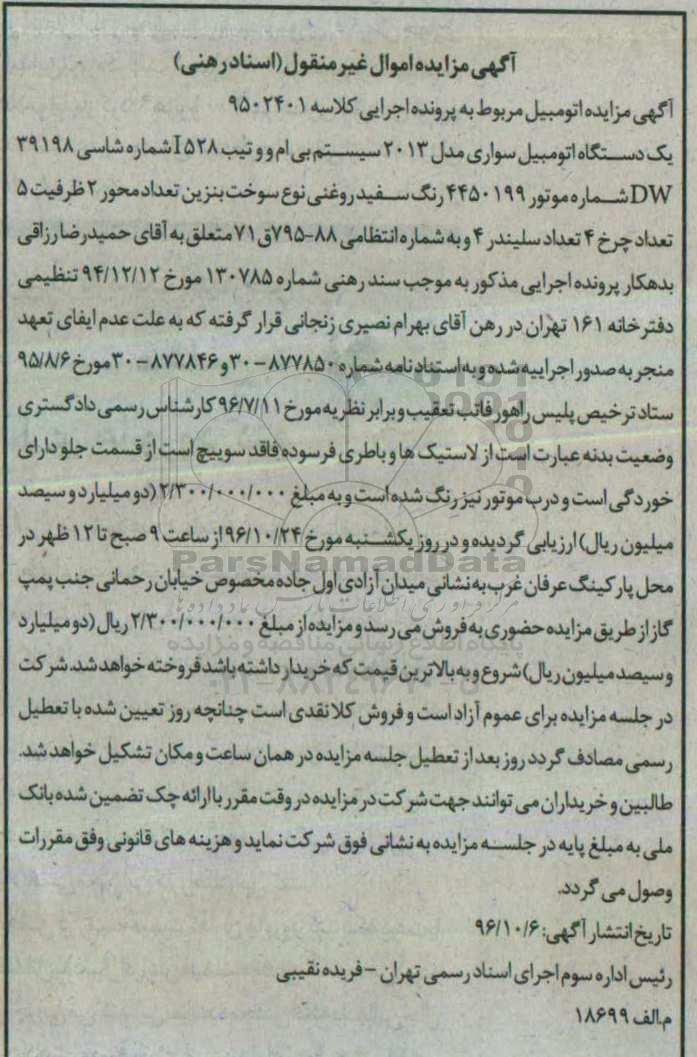 آگهی مزایده اموال غیر منقول (اسناد رهنی)
آگهی مزایده اتومبیل مربوط به پرونده اجرایی کلاسه ۹۵۰۲۴۰۱
یک دستگاه اتومبیل سواری مدل ۲۰۱۳ سیستم بی ام و و تیپ I۵۲۸ شماره شاسی ۳۹۱۹۸
DW شماره موتور ۴۴۵۰۱۹۹ رنگ سفید روغنی نوع سوخت بنزین تعداد محور ۲ ظرفیت ۵
تعداد چرخ ۴ تعداد سلیندر ۴ و به شماره انتظامی ۸۸-۷۹۵ق۷۱ متعلق به آقای حمیدرضا رزاقی
بدهکار پرونده اجرایی مذکور به موجب سند رهنی شماره ۱۳۰۷۸۵ مورخ ۹۴/۱۲/۱۲ تنظیمی
دفترخانه ۱۶۱ تهران در رهن آقای بهرام نصیری زنجانی قرار گرفته که به علت عدم ایفای تعهد
منجر به صدور اجراییه شده و به استناد نامه شماره ۸۷۷۸۵۰-۳۰ و ۸۷۷۸۴۶-۳۰ مورخ ۹۵/۸/۶
ستاد ترخیص پلیس راهور فاتب تعقیب و برابر نظریه مورخ ۹۶/۷/۱۱ کارشناس رسمی دادگستری
وضعیت بدنه عبارت است از لاستیک ها و باطری فرسوده فاقد سوییچ است از قسمت جلو دارای
خوردگی است و درب موتور نیز رنگ شده است و به مبلغ ۲/۳۰۰/۰۰۰/۰۰۰ (دو میلیارد و سیصد
میلیون ریال) ارزیابی گردیده و در روز یکشنبه مورخ ۹۶/۱۰/۲۴ از ساعت ۹ صبح تا ۱۲ ظهر در
محل پارکینگ عرفان غرب به نشانی میدان آزادی اول جاده مخصوص خیابان رحمانی جنب پمپ
گاز از طریق مزایده حضوری به فروش می رسد و مزایده از مبلغ ۲/۳۰۰/۰۰۰/۰۰۰ ریال (دو میلیارد
و سیصد میلیون ریال) شروع و به بالاترین قیمت که خریدار داشته باشد فروخته خواهد شد. شرکت
در جلسه مزایده برای عموم آزاد است و فروش کلا نقدی است چنانچه روز تعیین شده با تعطیل
رسمی مصادف گردد روز بعد از تعطیل جلسه مزایده در همان ساعت و مکان تشکیل خواهد شد.
طالبین و خریداران می توانند جهت شرکت در مزایده در وقت مقرر با ارائه چک تضمین شده بانک
ملی به مبلغ پایه در جلسه مزایده به نشانی فوق شرکت نماید و هزینه های قانونی وفق مقررات
وصول می گردد.
تاریخ انتشار آگهی: ۹۶/۱۰/۶
رئیس اداره سوم اجرای اسناد رسمی تهران - فریده نقیبی
م.الف ۱۸۶۹۹
ParsNamadData
پایگاه اطلاع رسانی مناقصه و مزایده